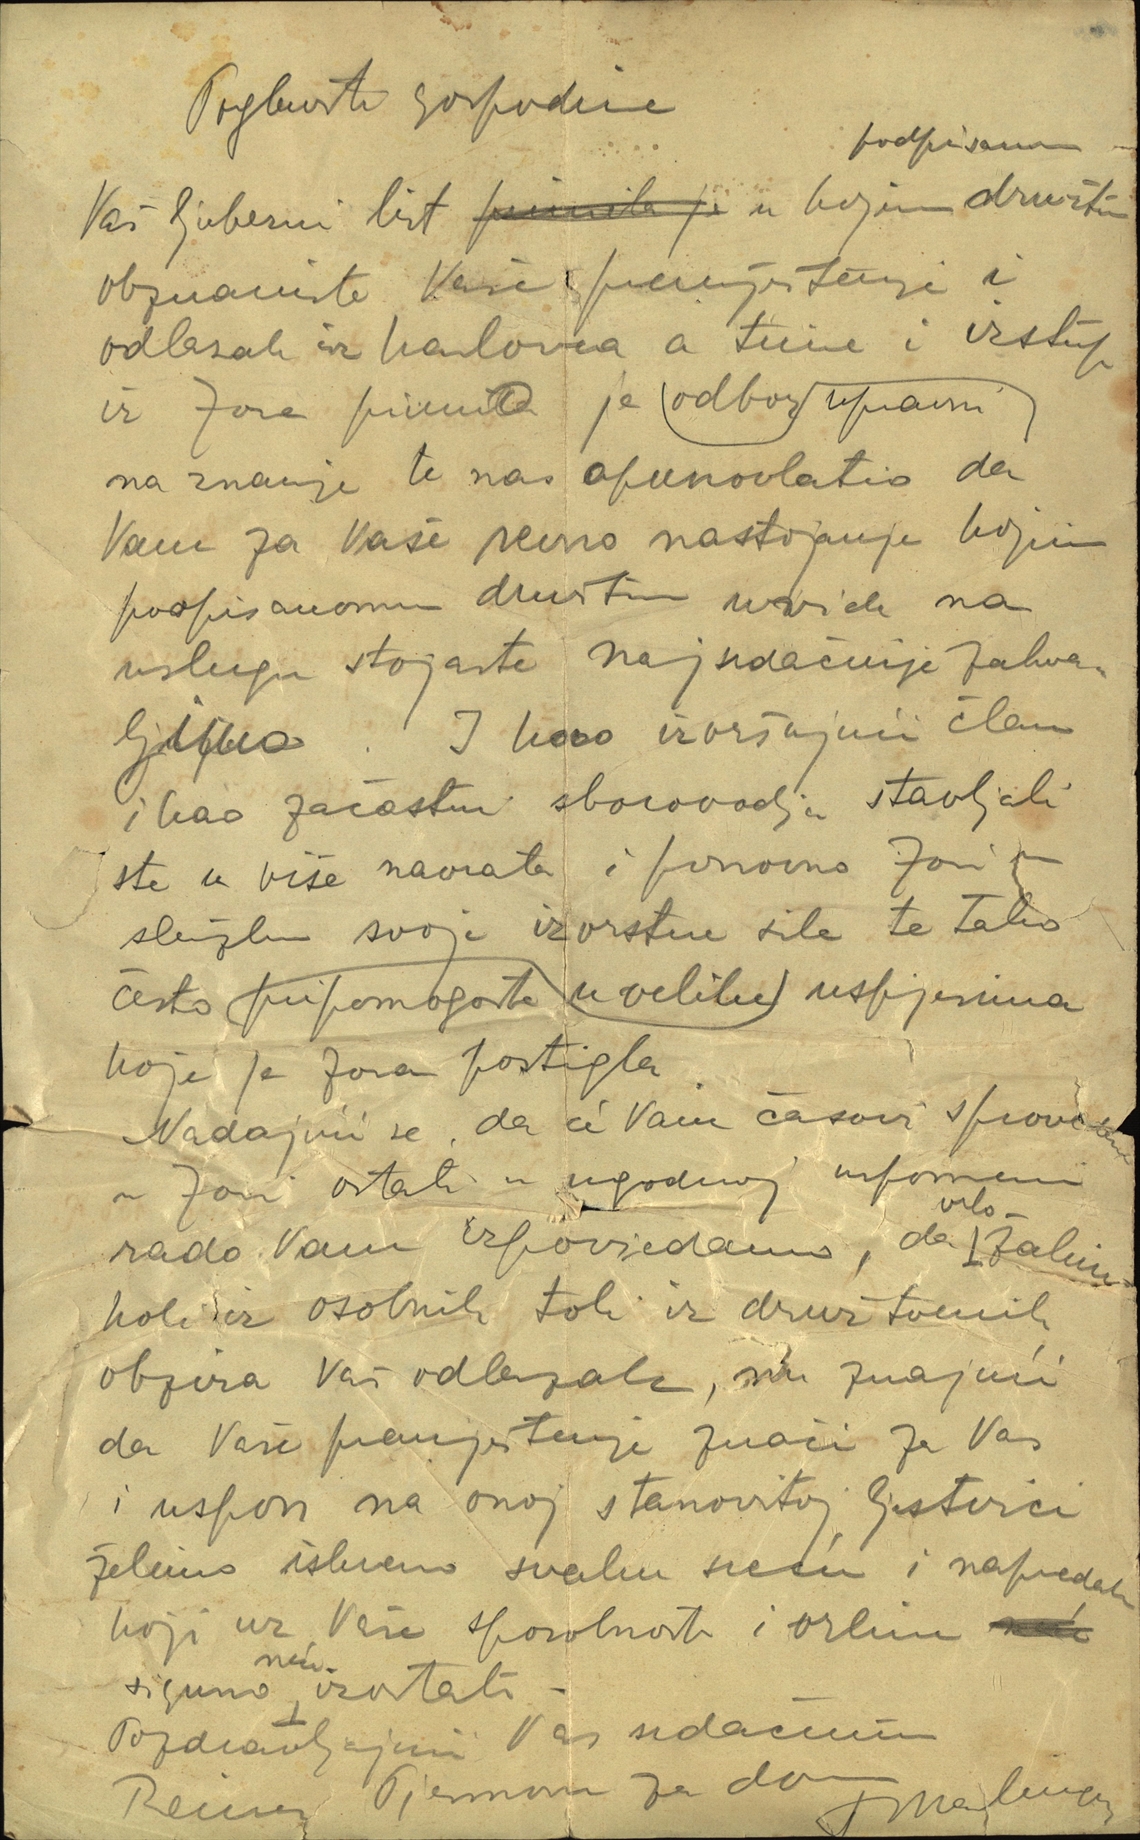 Poglaviti gospodine
podpisanom
Vaš ljubezni list primila je u kojim društvu
obznaniste Vaše premještenje i
odlazak iz Karlovca a time i izstup
iz Zore primila je odbor upravni
na znanje te nas opunovlatio da
Vam za Vaše revno nastojanje kojim
podpisanomu društvu uviek na
uslugu stojaste najsrdačnije zahva
ljujemo. I kao izvršujući član
i kao začastni sborovodja stavljali
ste u više navrata i ponovno Zori u
službu svoje izvrstne sile te tako
često pripomogoste u velike uspjesima
koje je Zora postigla
Nadajući se, da će Vam časovi sprovedeni
u Zori ostati u ugodnoj uspomeni
vrlo
rado Vam izpovjedamo, da žalimo
koli iz osobnih toli iz družtvenih
obzira Vaš odlazak, nu znajući
da Vaše premještenje znači za Vas
i uspon na onoj stanovitoj ljestvici
želimo iskreno svaku sreću i napredak
koji uz Vaše sposobnosti i vrline
neće
sigurno izostati -
Pozdravljajući Vas srdačnim
Pjesmom za dom